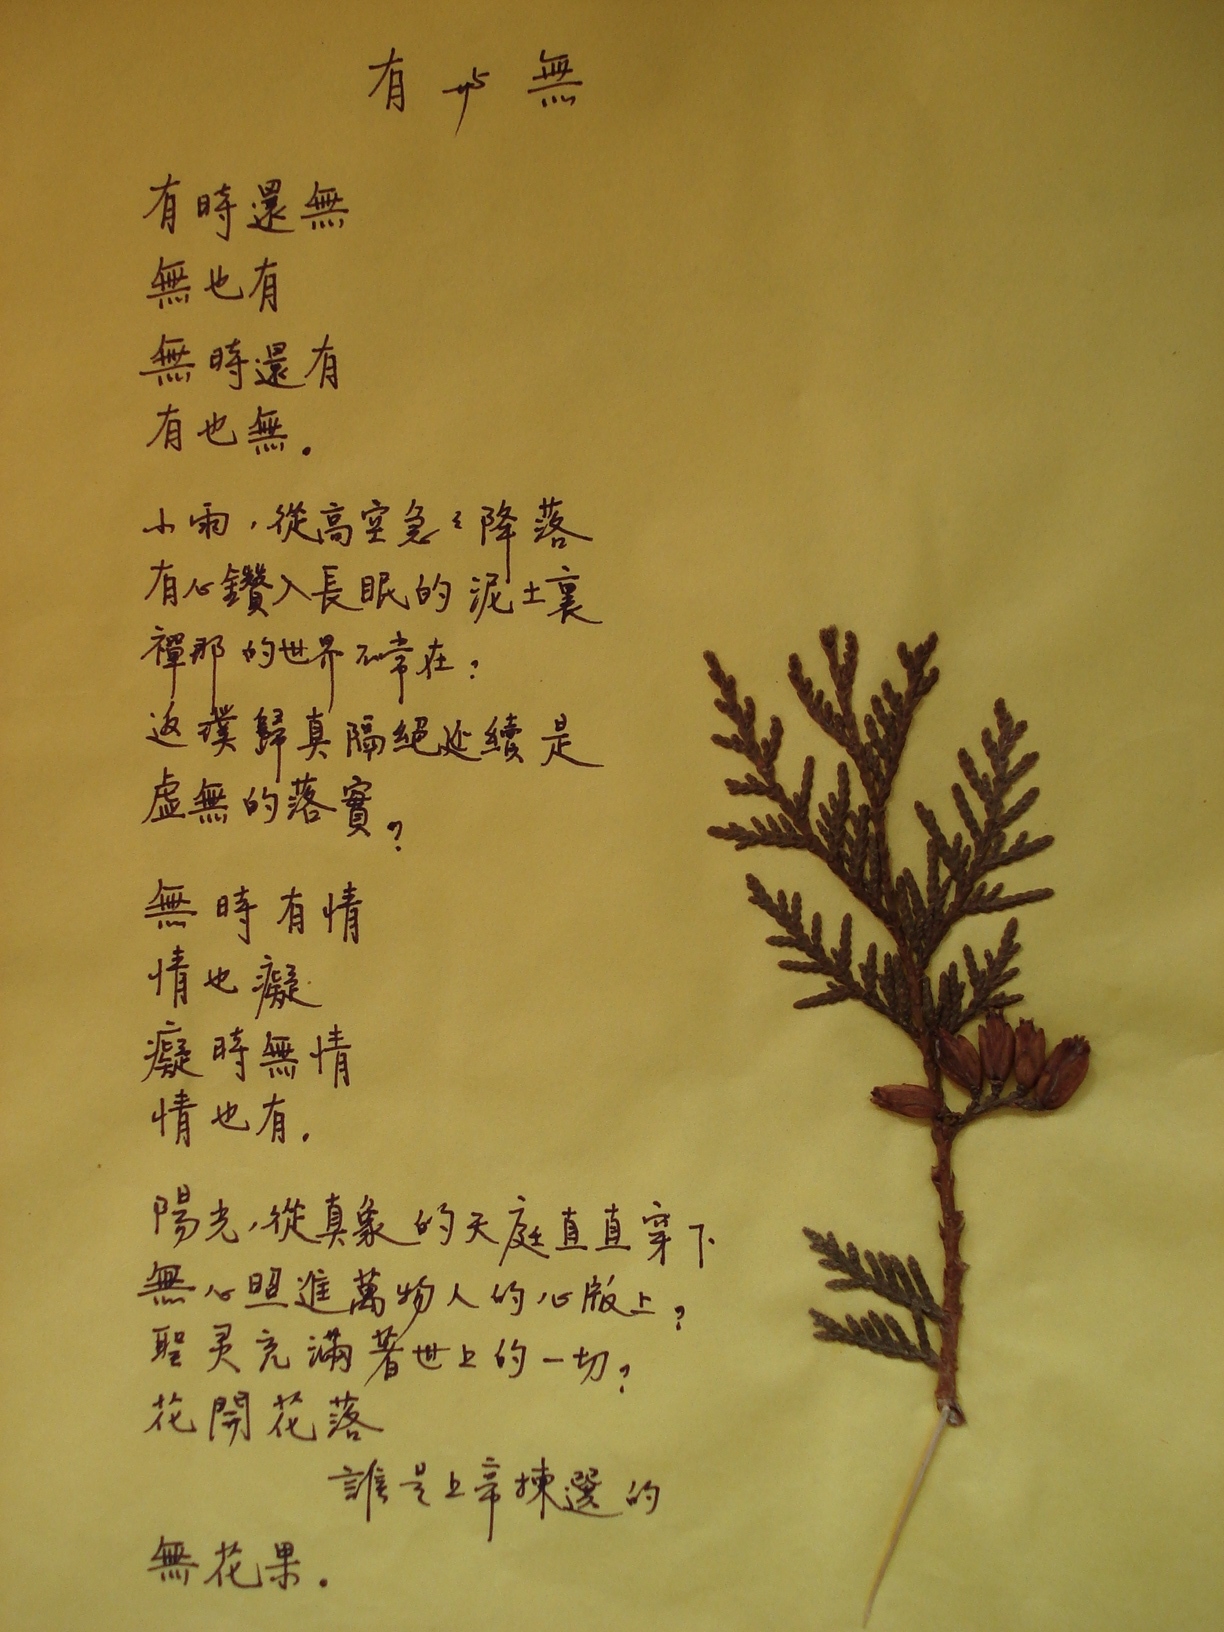 有與無
有時還無
無也有
無時還有
有也無.
小雨,從高空急々降落
有心鑽入長眠的泥土裏
禪那的世界不常在?
返璞歸真隔絕延續是
虛無的落實?
無時有情
情也癡
癡時無情
情也有.
陽光,從真象的天庭直直穿下
無心照進萬物人的心版上?
聖灵充滿著世上的一切?
花開花落
誰是上帝揀選的
無花果.